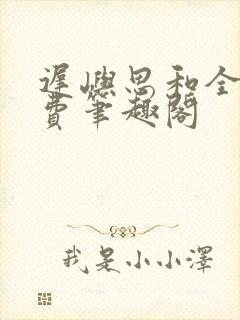 遲嶼思和全
費筆趣閣
我是小小澤